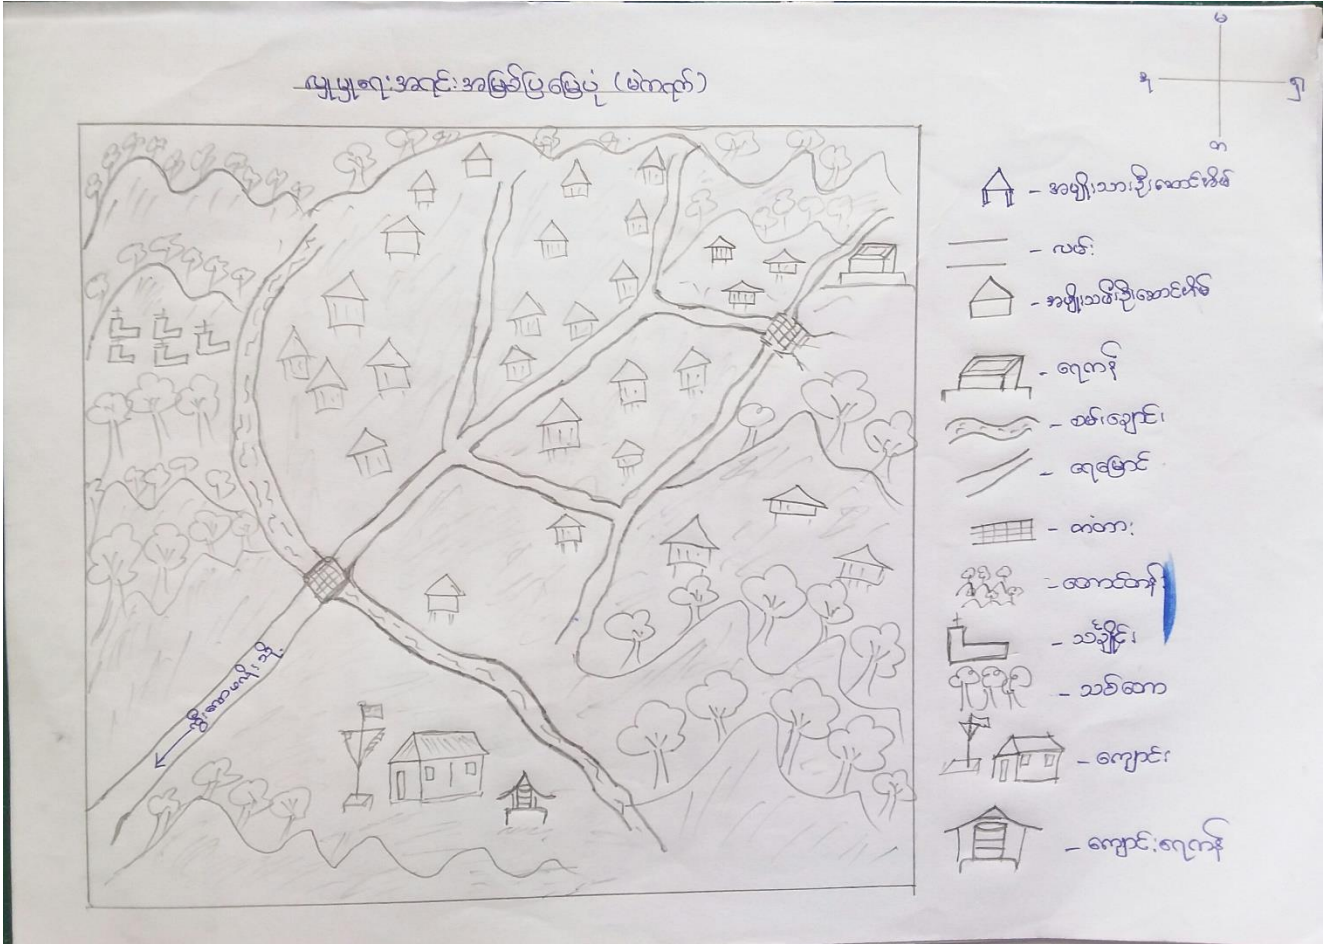 လူမှုရေးအရင်းအမြစ်ပြမြေပုံ (မဲကရက်)
မ
ရှ
တ
- အမျိုးသားဦးဆောင်အိမ်
- လမ်း
- အမျိုးသမီးဦးဆောင်အိမ်
- ရေကန်
- စမ်းချောင်း
- ရေမြောင်း
- တံတား
- တောင်တန်း
- သင်္ချိုင်း
- သစ်တော
- ကျောင်း
- ကျောင်းရေကန်